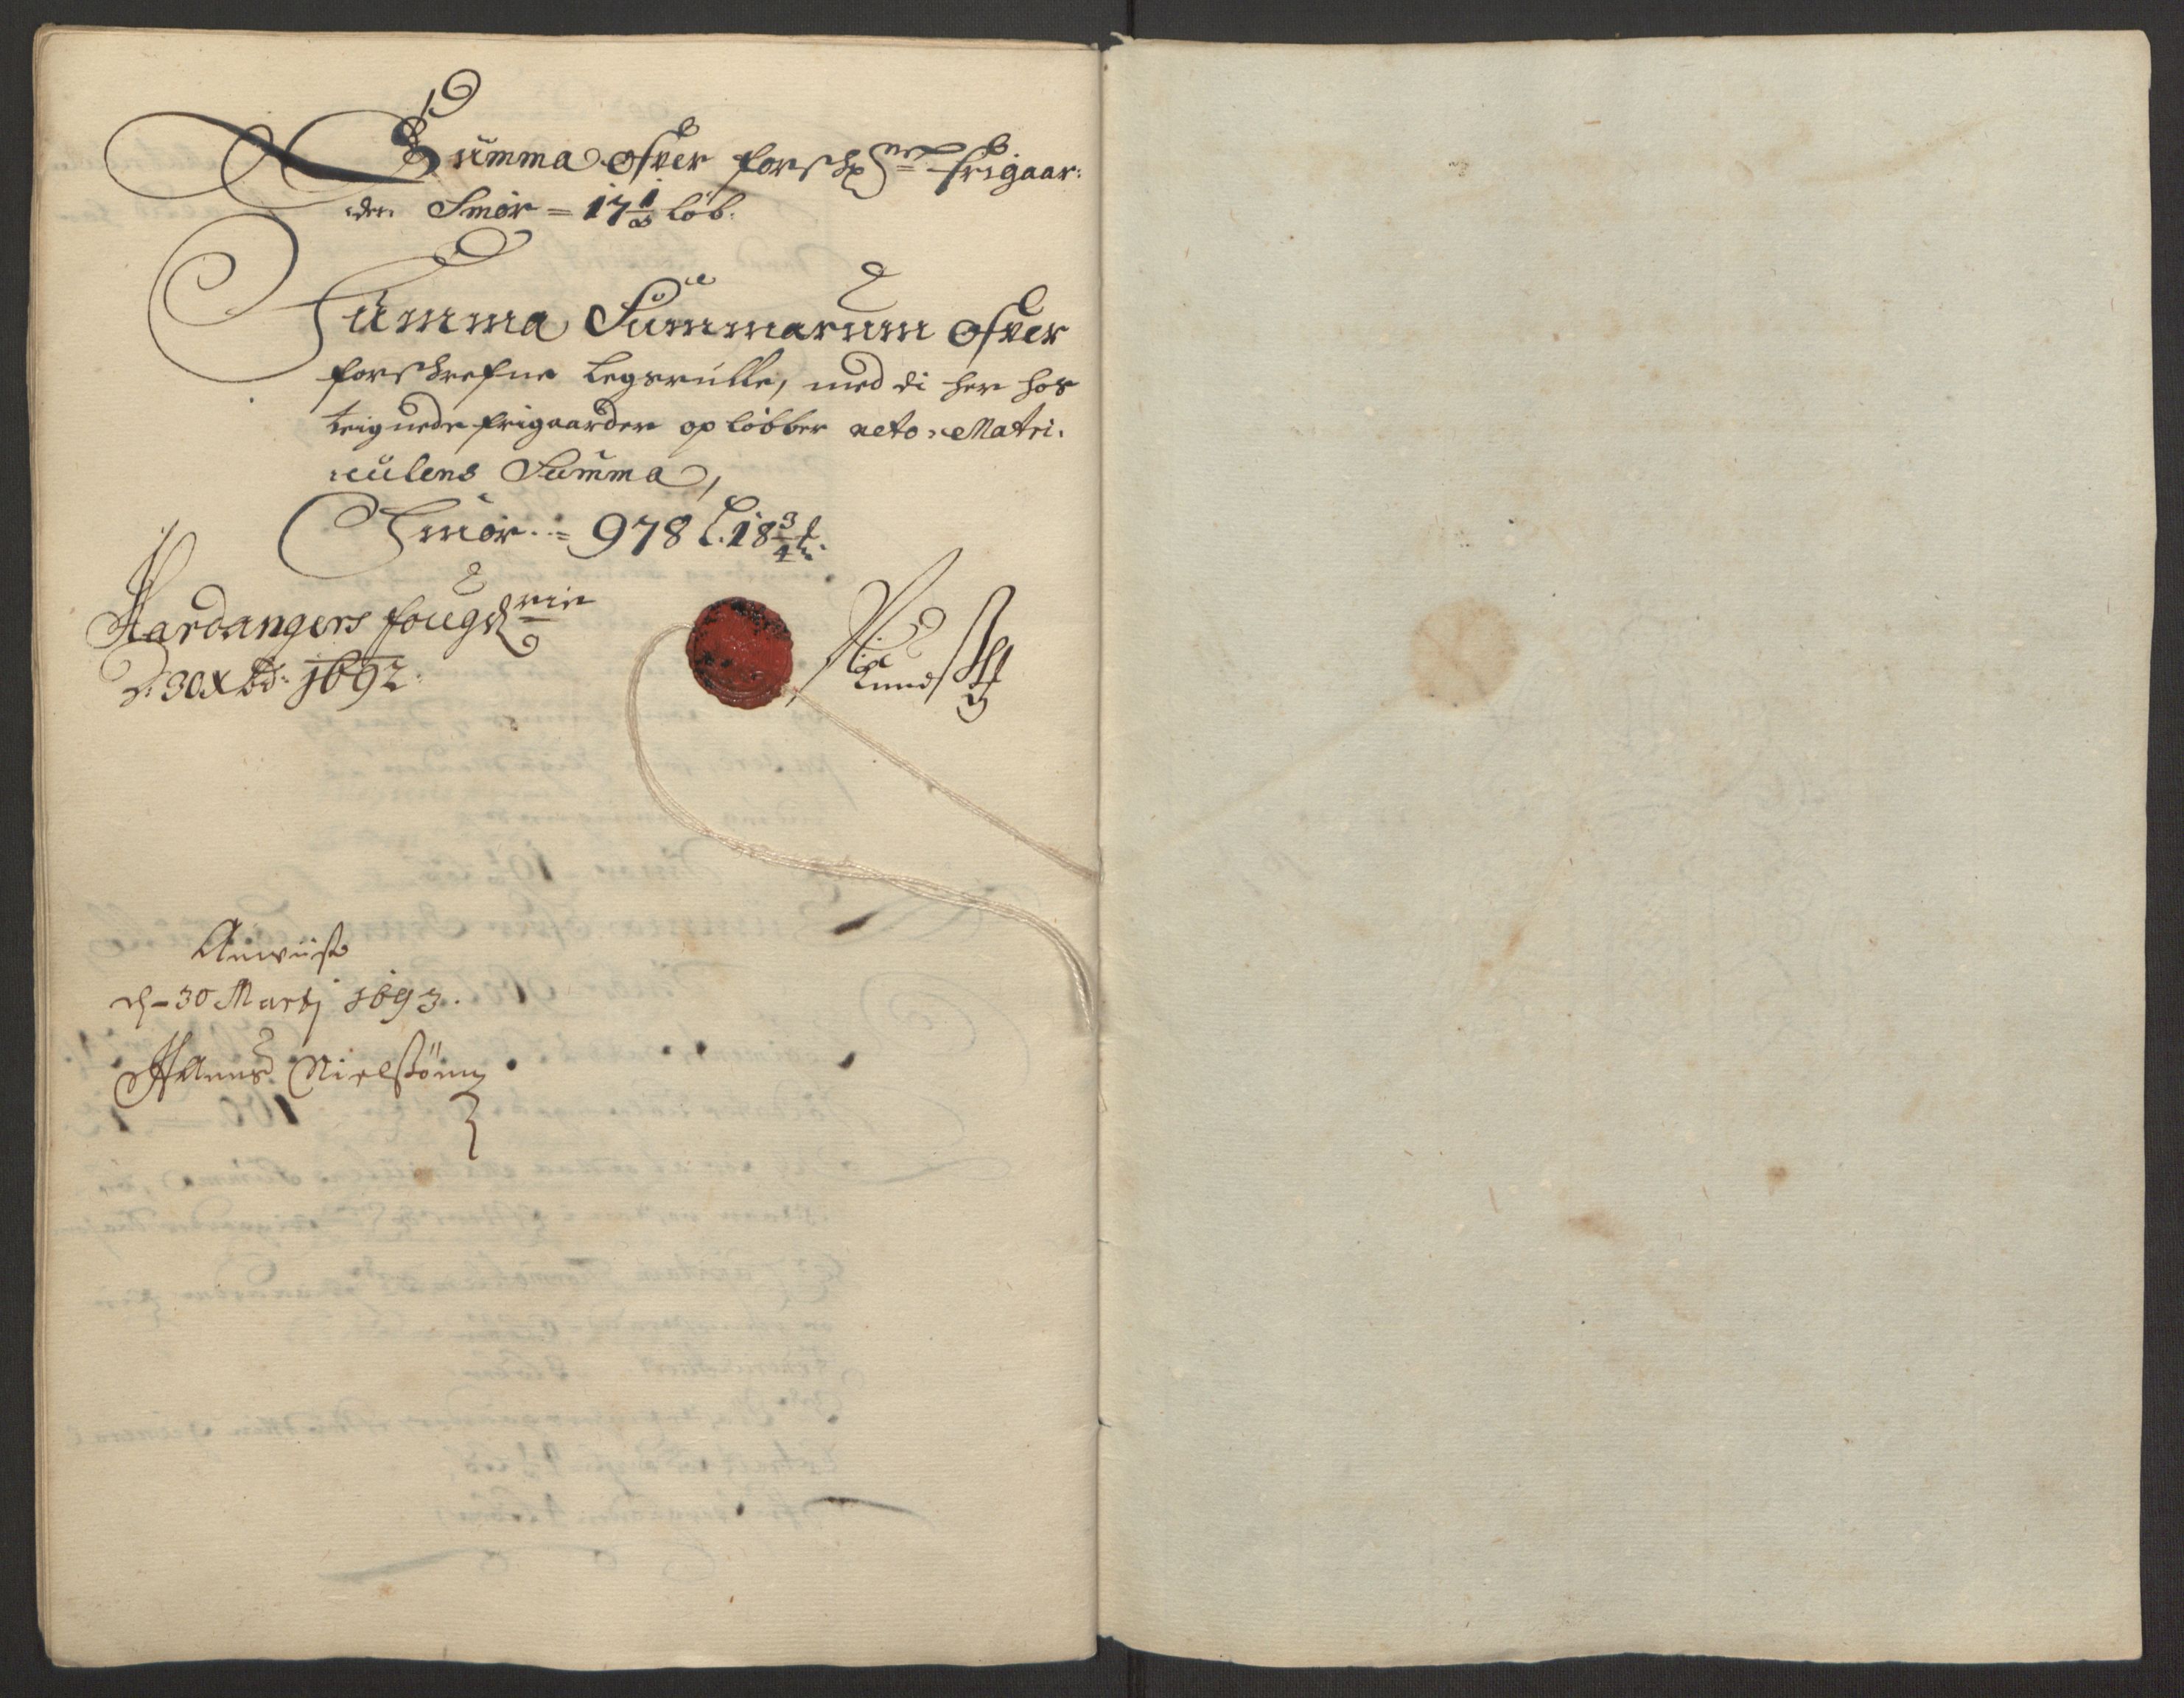 Summa ofver forschr:ne frigaar:
:der Smör = 17 1/8 löb.
Summa Summarum ofver
forschrefne Legsrulle, med di her hos
teignede frigaarder op löbber neto. Matri:
:culens Summa,
Smör = 978 L. 18 3/4
Hardangers fougderie
D. 30 Xbr: 1692.
Knud
Anviist
d. 30 Martj 1693.
Hans Nielsøn